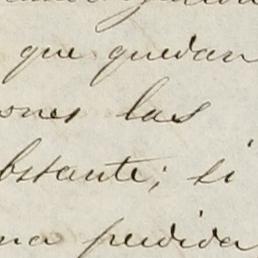 que quedan
ones las
bstante; si
na perdida